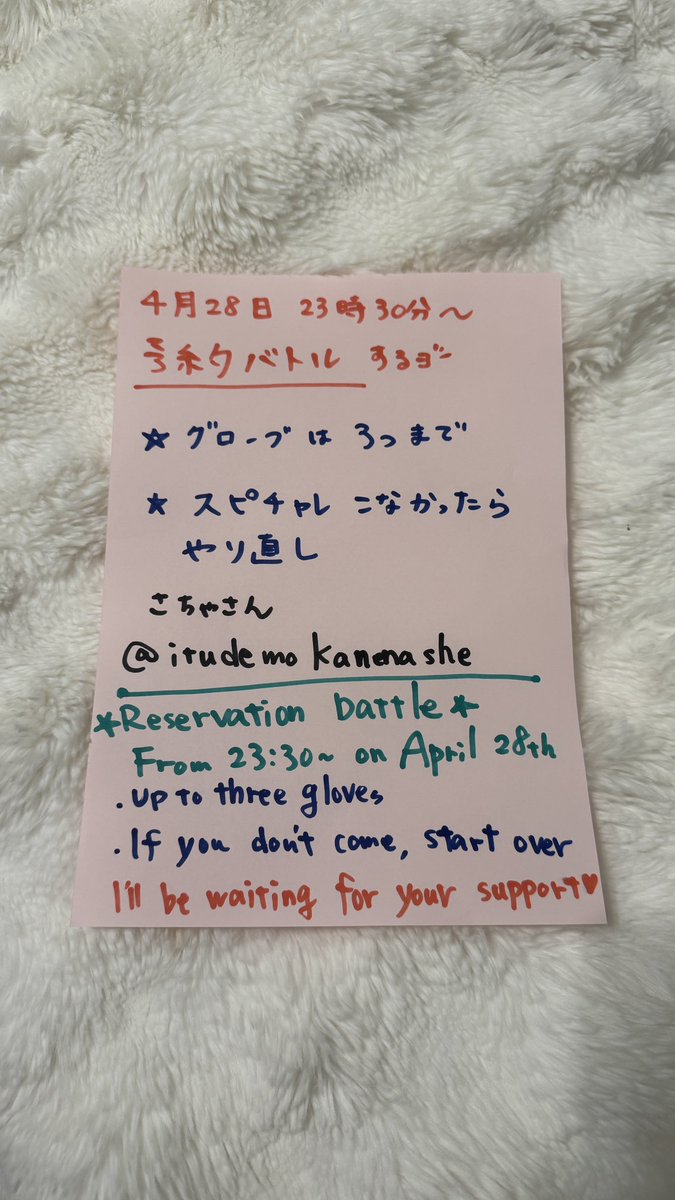 4月28日 23時30分〜
予約バトル するヨー
★ グローブは 3つまで
★ スピチャレ こなかったら
やり直し
さちゃさん
@itudemokanenashe
*Reservation battle*
From 23:30~ on April 28th
.up to three gloves
.If you don't come, start over
I'll be waiting for your support♥